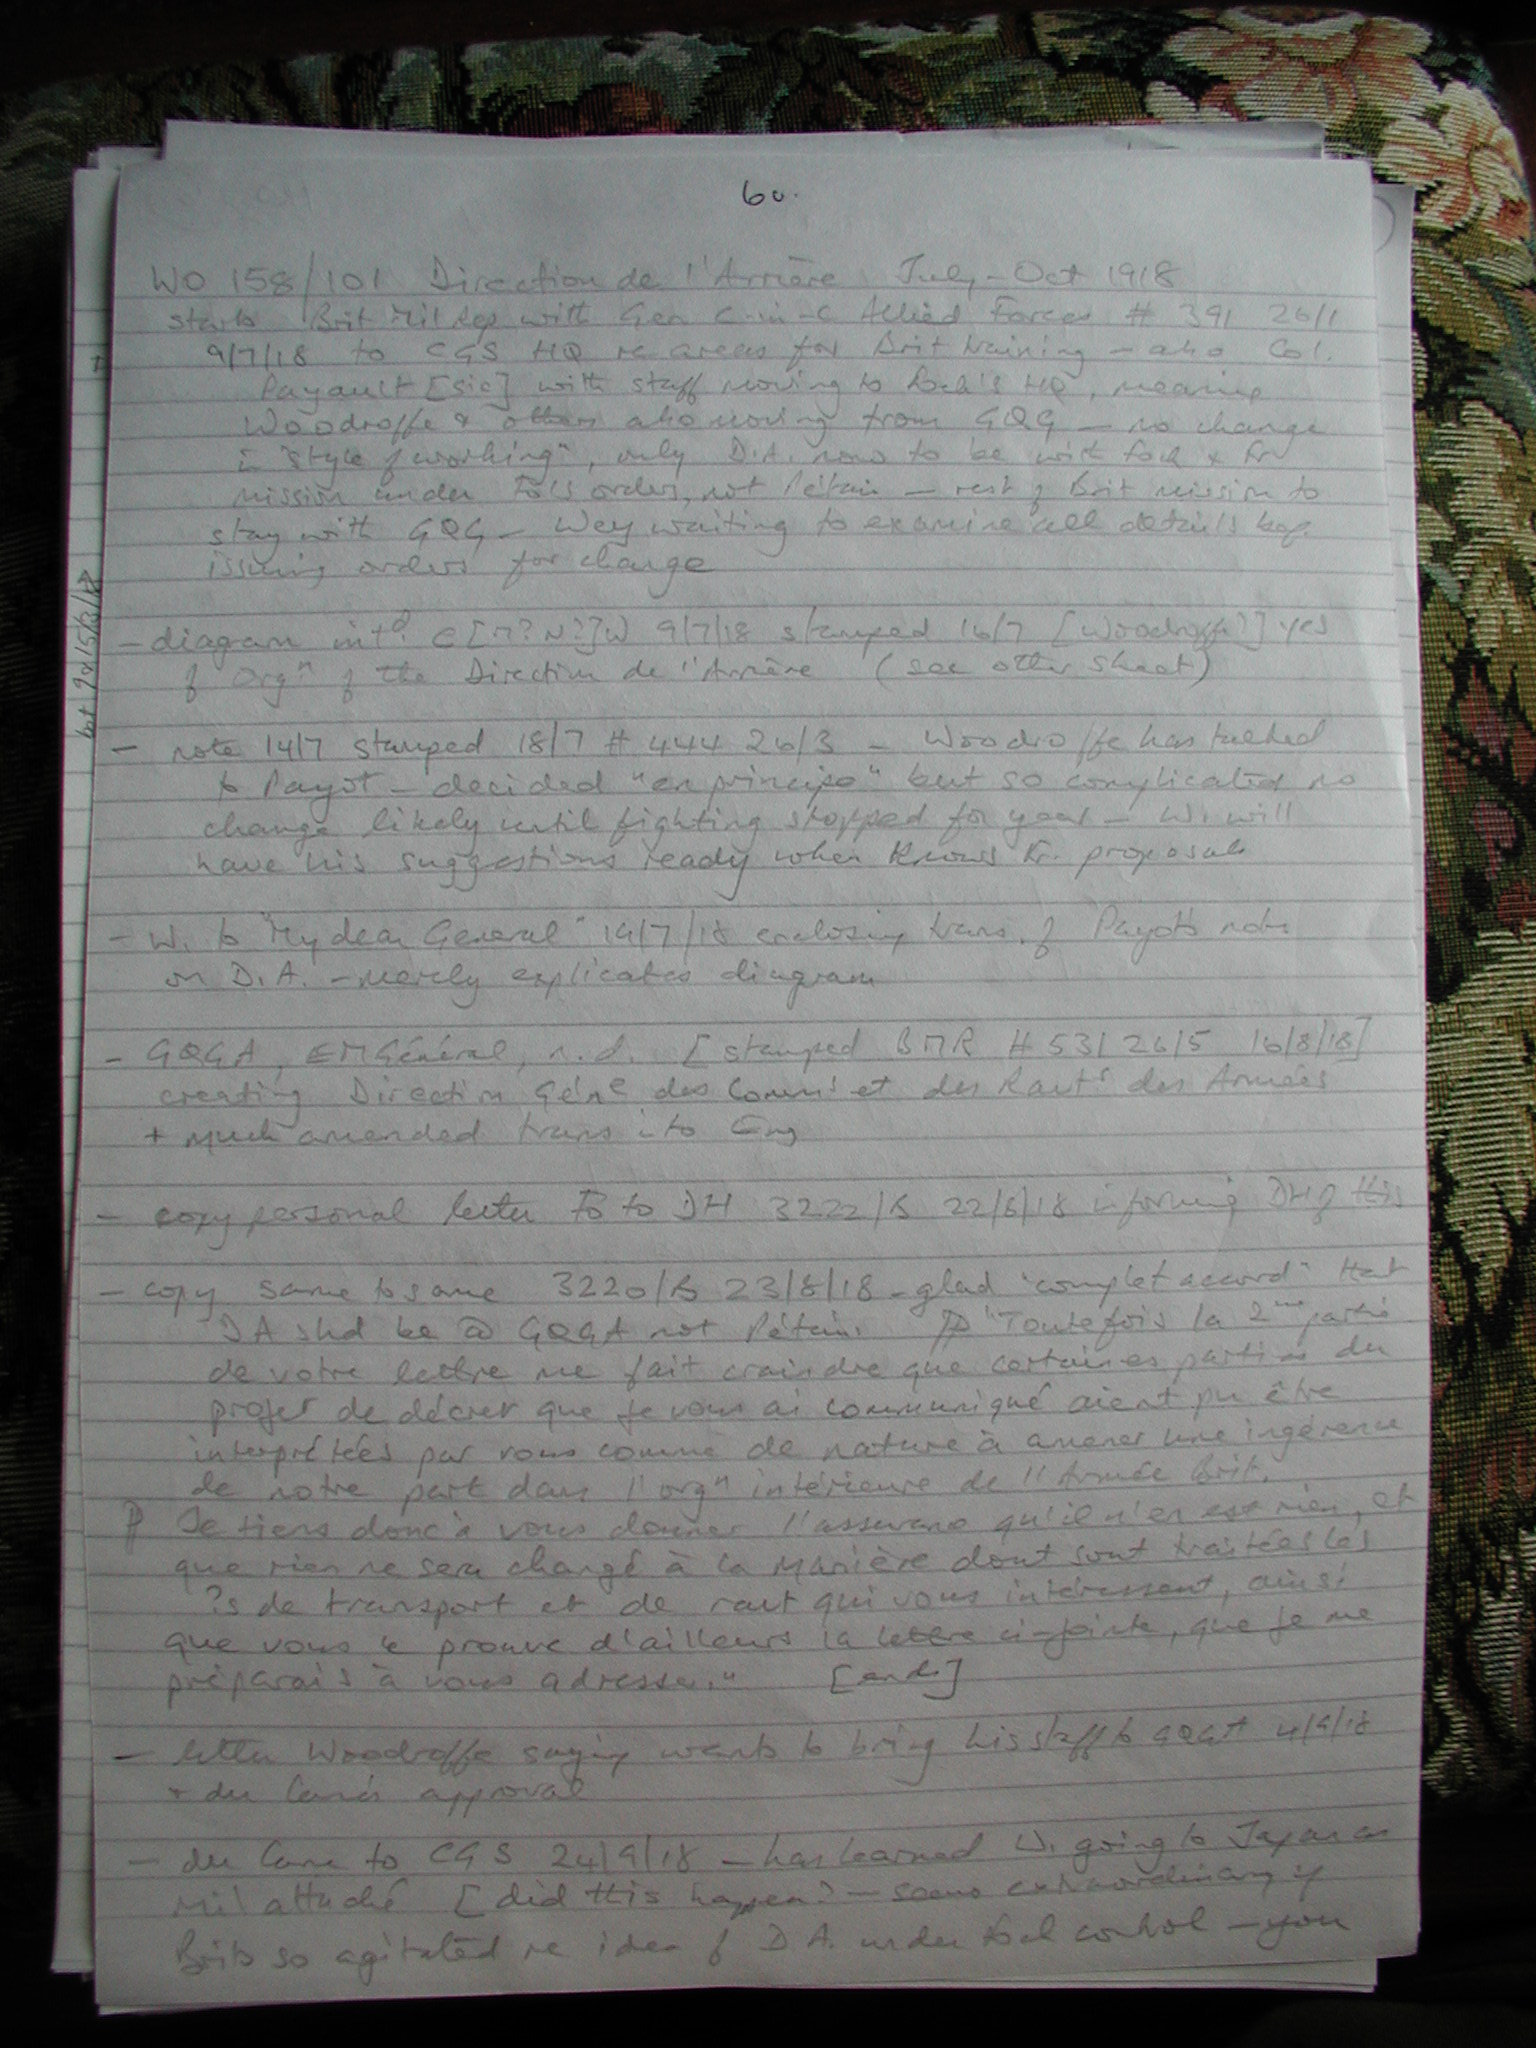 60.
WO 158/101 Direction de l'Arrière July - Oct 1918
starts Brit Mil Rep with Gen C-in-C Allied Forces # 391 26/1
9/7/18 to CGS HQ re areas for Brit training - also Col.
Payault [sic] with staff moving to Foch's HQ, meaning
Woodroffe & others also moving from GQG - no change
in "style of working", only D.A. now to be with Foch & Fr
mission under Fo's orders, not Pétain - rest of Brit mission to
stay with GQG - Wey waiting to examine all details bef.
issuing orders for change
- diagram C[M? N?]W 9/7/18 stamped 16/7 [Woodroffe?] yes
of Orgn of the Direction de l'Arrière (see other sheet)
- note 14/7 stamped 18/7 # 444 26/3 - Woodroffe has talked
to Payot - decided "en principe" but so complicated no
change likely until fighting stopped for year - W. will
have his suggestions ready when knows Fr. proposals
- W. to "My dear General" 14/7/18 enclosing trans. of Payot's note
on D.A. - merely explicates diagram
- GQGA, EMGénéral, n.d. [stamped BMR # 531 26/5 16/8/18]
creating Direction Génle des Commns et des Ravts des Armées
+ much amended trans into Eng
- copy personal letter Fo to DH 3222/B 22/8/18 informing DH of this
- copy same to same 3220/B 23/8/18 - glad "complet accord" that
DA shd be @ GQGA not Pétain. ¶ "Toutefois la 2me partie
de votre lettre me fait craindre que certaines parties du
projet de décret que je vous ai communiqué aient pu être
interprétées par vous comme de nature à amener une ingérence
de notre part dans l'orgn intérieure de l'Armée Brit.
¶ Je tiens donc à vous donner l'assurance qu'il n'en est rien, et
que rien ne sera changé à la manière dont sont traitées les
?s de transport et de ravt qui vous intéressent, ainsi
que vous le prouve d'ailleurs la lettre ci-jointe, que je me
préparais à vous adresser." [ends]
- letter Woodroffe saying wants to bring his staff to GQGA 4/9/18
+ du Cane's approval
- du Cane to CGS 24/9/18 - has learned W. going to Japan as
mil attaché [did this happen? - seems extraordinary if
Brits so agitated re idea of D.A. under Foch control - you